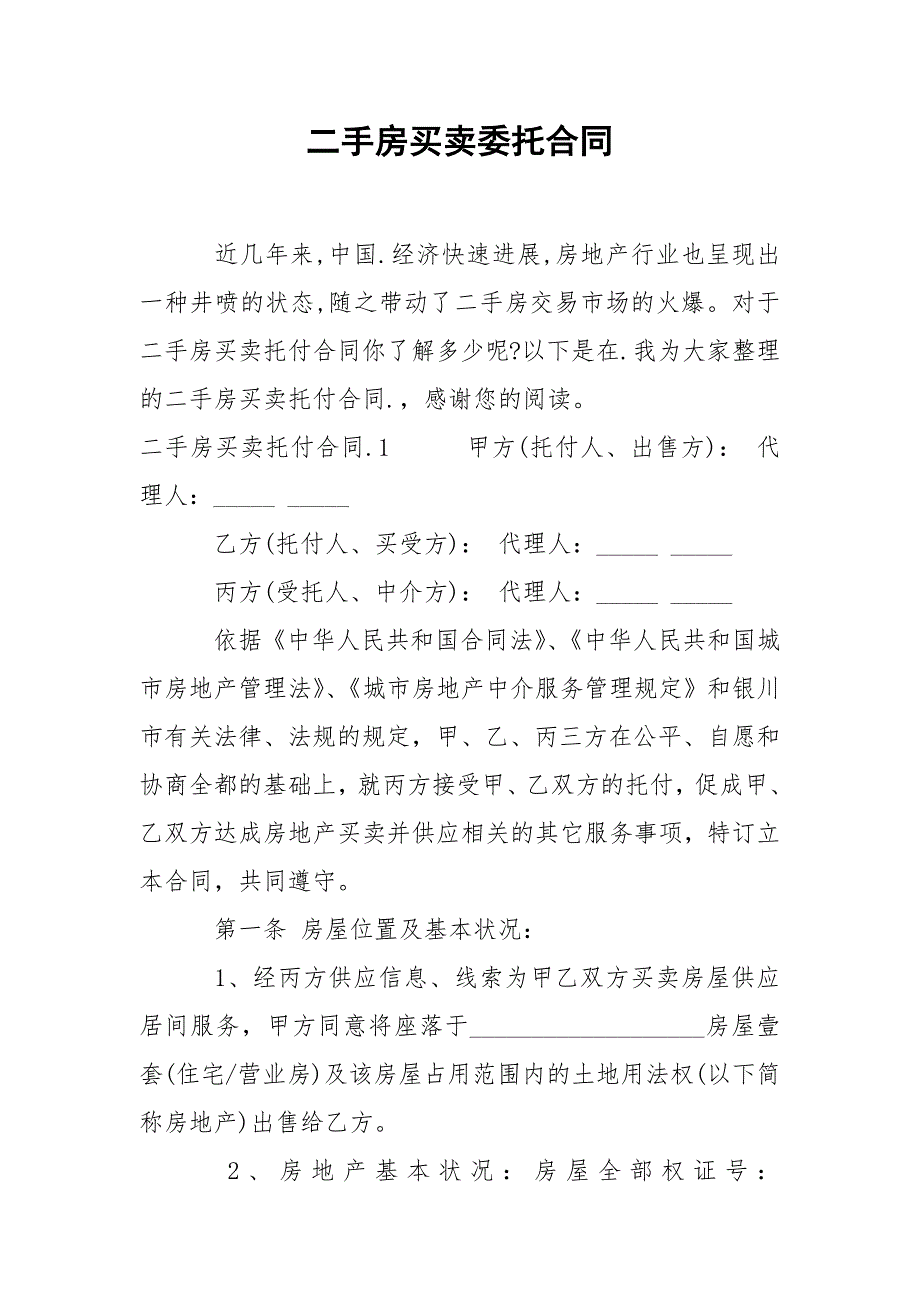 二手房买卖委托合同
近几年来,中国.经济快速进展,房地产行业也呈现出
一种井喷的状态,随之带动了二手房交易市场的火爆。对于
二手房买卖托付合同你了解多少呢?以下是在.我为大家整理
的二手房买卖托付合同.，感谢您的阅读。
二手房买卖托付合同.1 甲方(托付人、出售方)： 代
理人：_____ _____
乙方(托付人、买受方)： 代理人：_____ _____
丙方(受托人、中介方)： 代理人：_____ _____
依据《中华人民共和国合同法》、《中华人民共和国城
市房地产管理法》、《城市房地产中介服务管理规定》和银川
市有关法律、法规的规定，甲、乙、丙三方在公平、自愿和
协商全都的基础上，就丙方接受甲、乙双方的托付，促成甲、
乙双方达成房地产买卖并供应相关的其它服务事项，特订立
本合同，共同遵守。
第一条 房屋位置及基本状况：
1、经丙方供应信息、线索为甲乙双方买卖房屋供应
居间服务，甲方同意将座落于___________________房屋壹
套(住宅/营业房)及该房屋占用范围内的土地用法权(以下简
称房地产)出售给乙方。
2、房地产基本状况：房屋全部权证号：